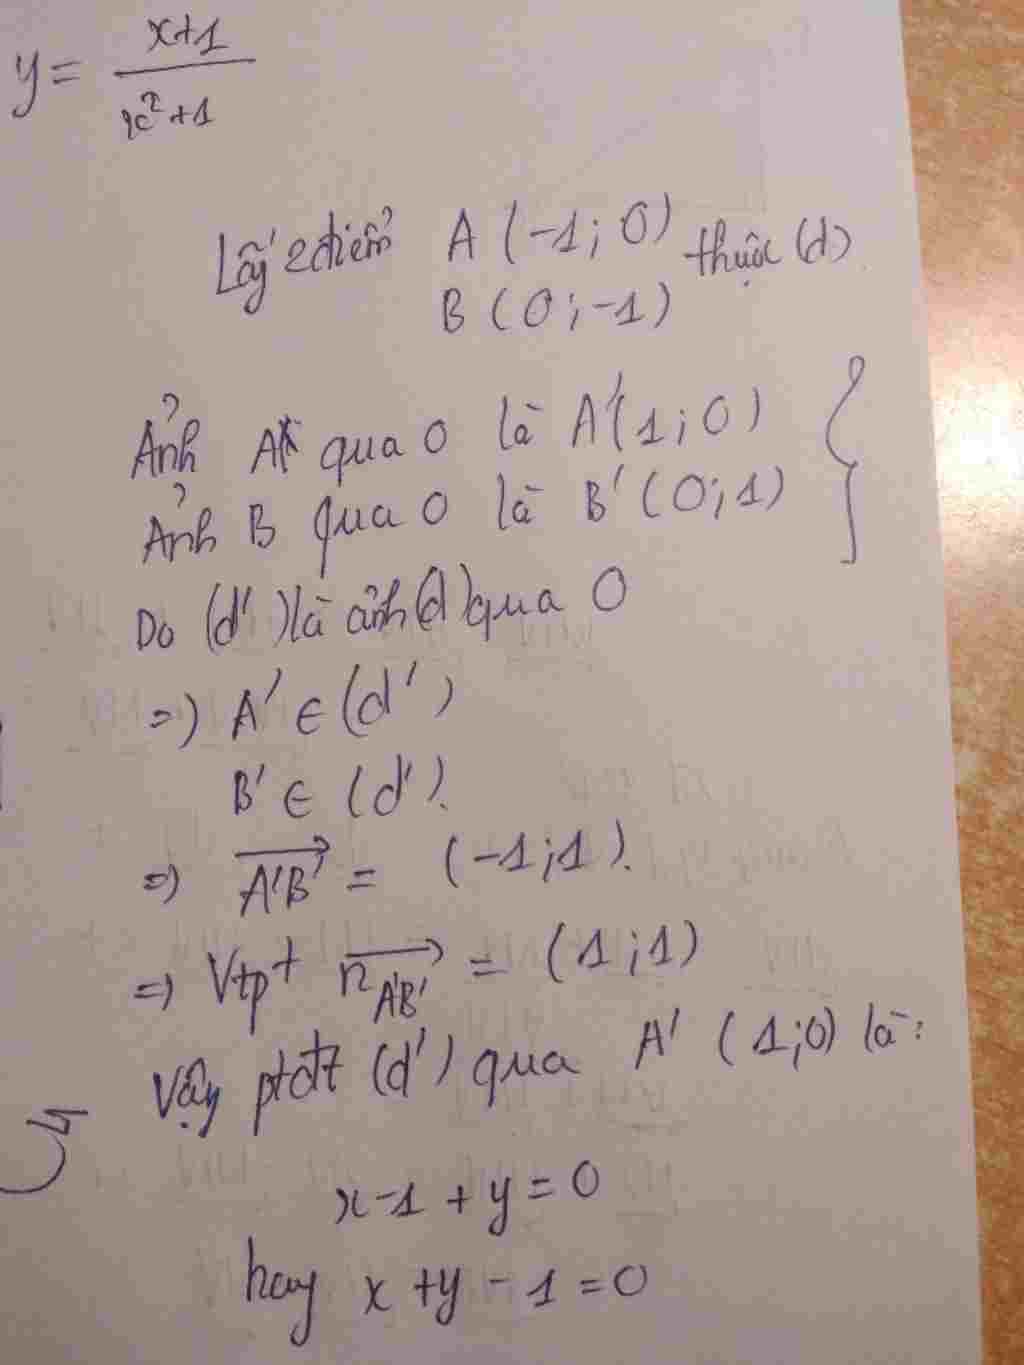 y = x+1
x²+1
Lấy 2 điểm A (-1; 0) thuộc (d)
B (0; -1)
Ảnh A qua O là A'(1; 0)
Ảnh B qua O là B' (0; 1)
Do (d') là ảnh (d) qua O
=) A' ∈ (d')
B' ∈ (d').
=) A'B' = (-1; 1).
=) Vtpt n A'B' = (1; 1)
Vậy ptđt (d') qua A' (1; 0) là:
x-1 + y = 0
hay x + y - 1 = 0